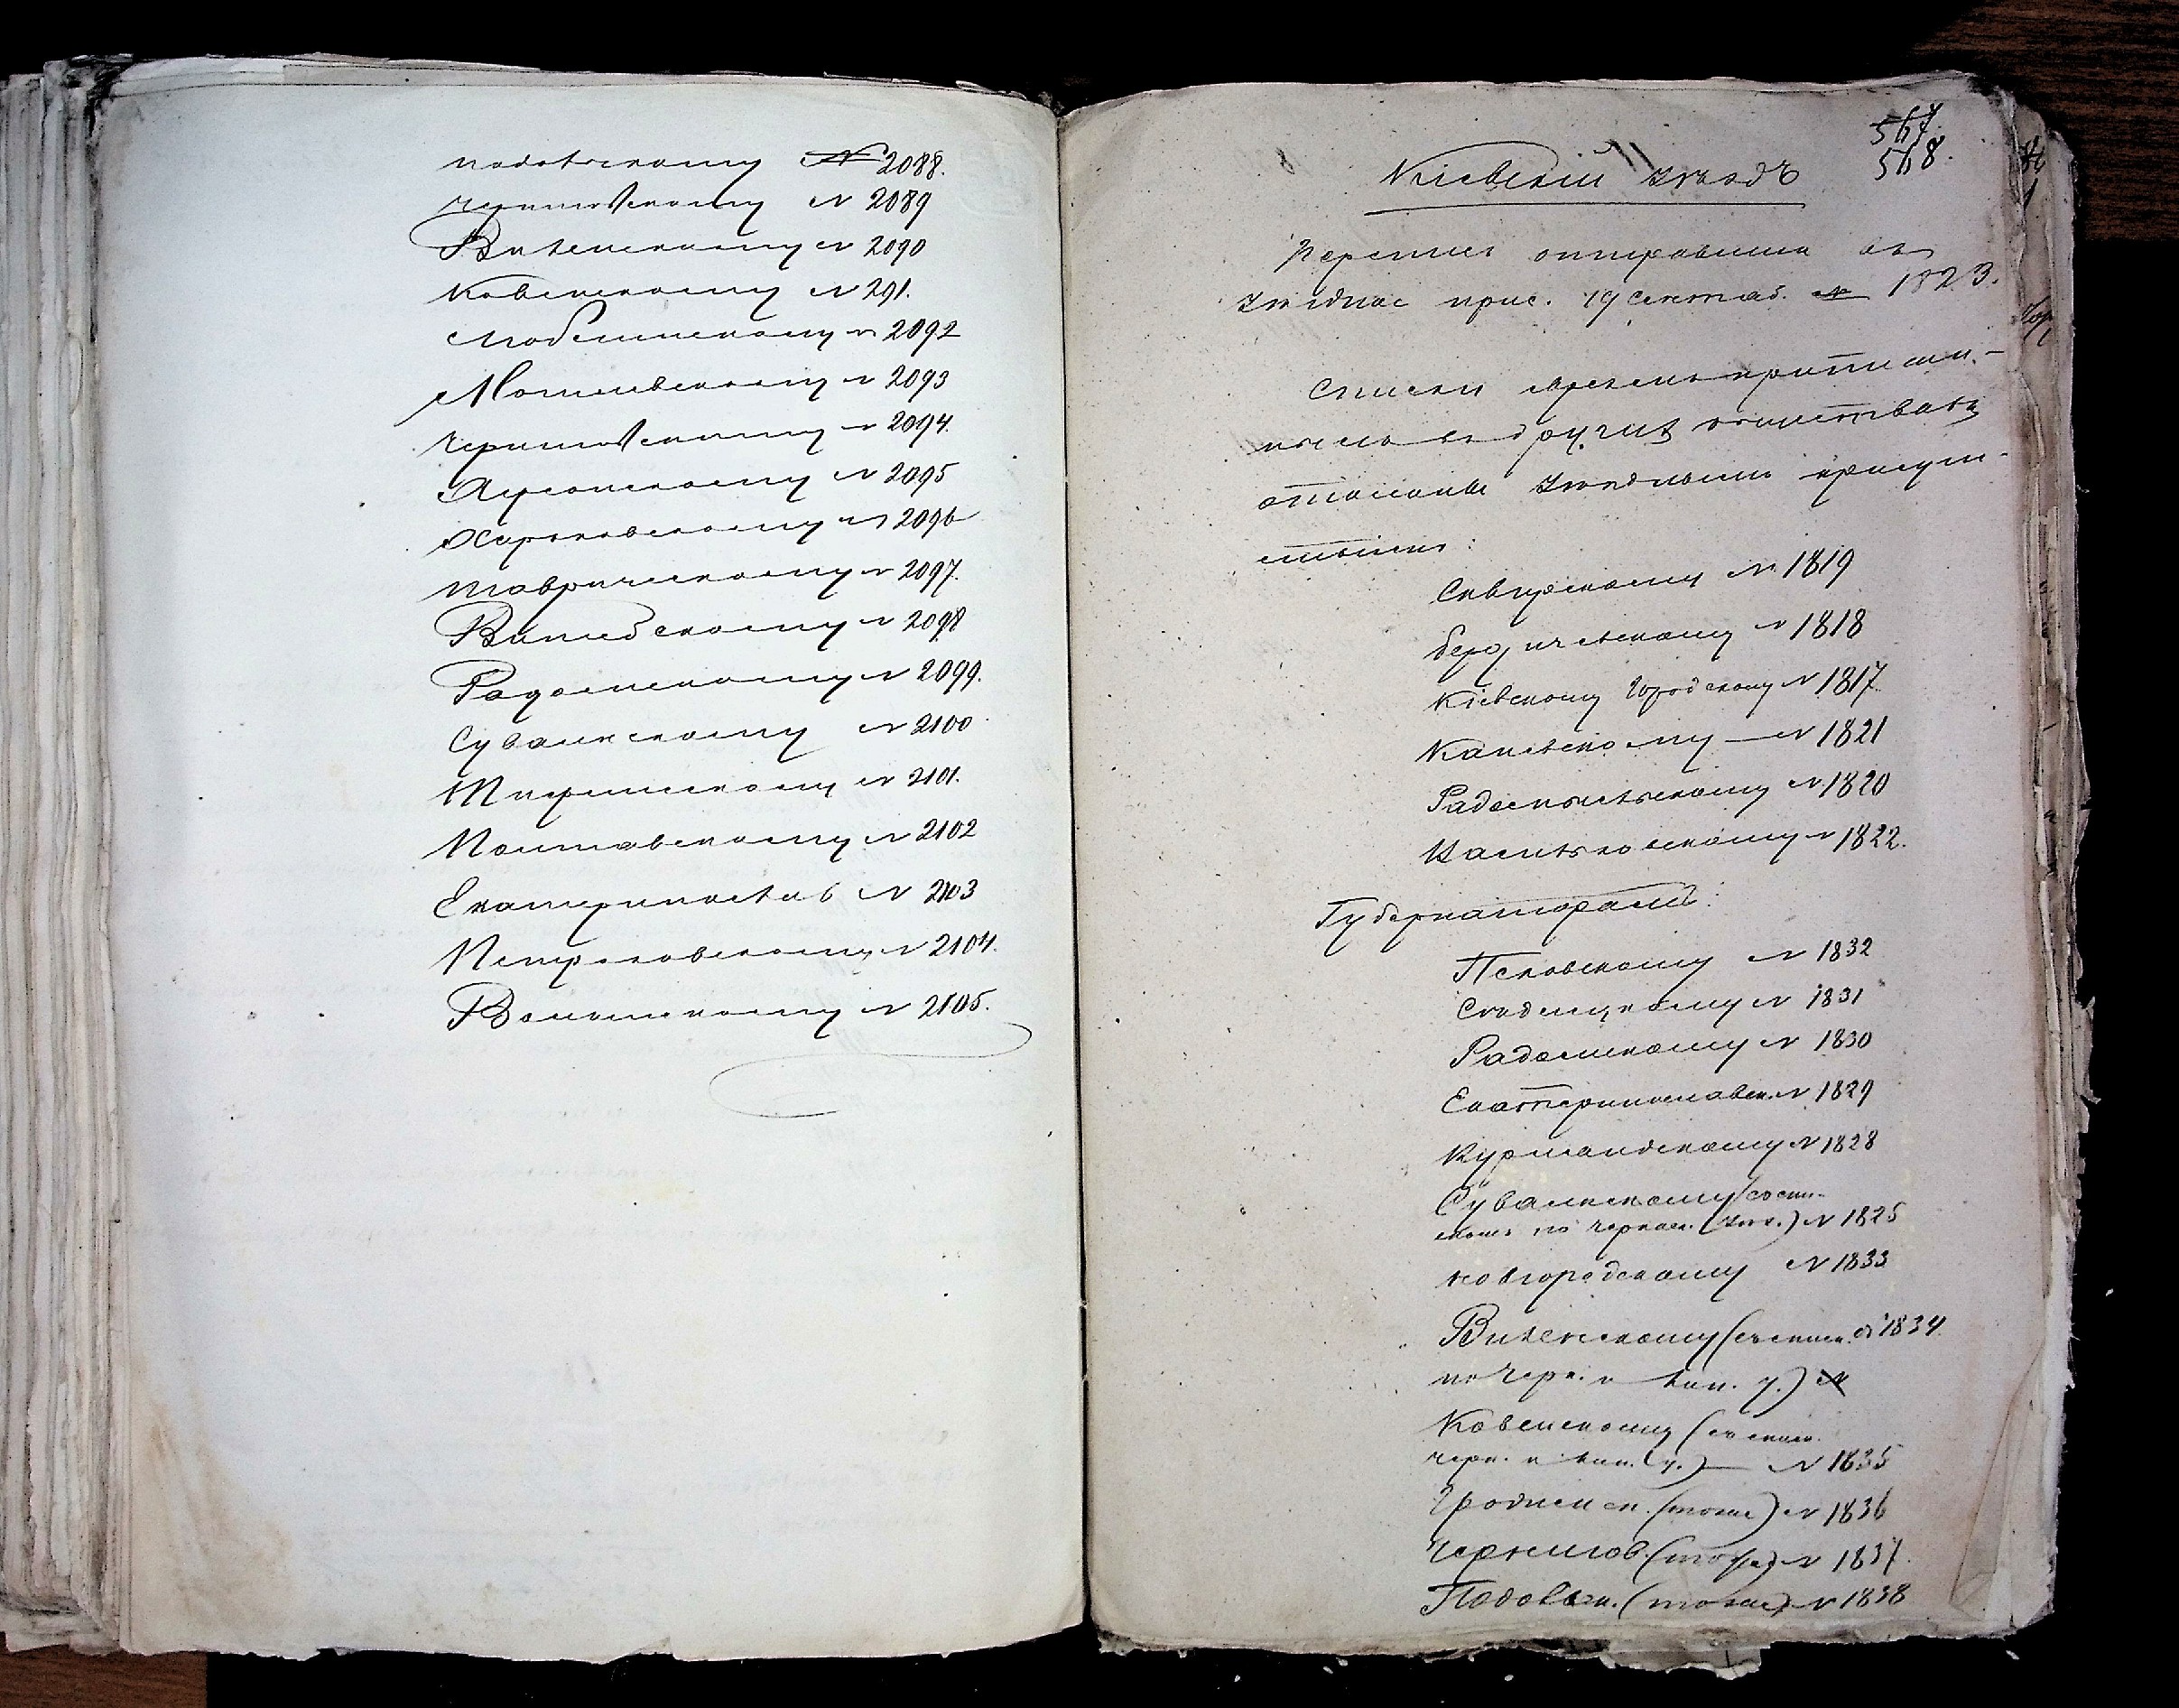 Подольскому № 2088.
Черниговскому № 2089
Виленскому № 2090
Ковенскому № 291.
Люблинскому № 2092
Могилевскому № 2093
Черниговскому № 2094.
Херсонскому № 2095
Харьковскому № 2096
Таврическому № 2097.
Витебскому № 2098
Радомскому № 2099.
Сувалкскому № 2100
2101.
Полтавскому № 2102
Екатеринослав № 2103
Петроковскому № 2104.
Волынскому № 2105.
567.
568.
Кіевскій уѣздъ
отправлена въ
уѣздное прис. 19 Сентяб. № 1823.
Списки
въ другихъ обществахъ
отосланы Уѣзднымъ присут-
ствіямъ:
Сквирскому № 1819
Бердичевскому № 1818
Кіевскому Городскому № 1817.
Каневскому — № 1821
Радомысльскому № 1820
Васильковскому № 1822.
Губернаторамъ:
Псковскому № 1832
Сѣдлецкому № 1831
Радомскому № 1830
Екатеринославск. № 1829
Курляндскому № 1828
Сувалкскому (со спи-
скомъ по Черкас. уѣз.) № 1825
Новгородскому № 1833
Виленскому (съ списк. № 1834.
по Черк. и кан. у.) №
Ковенскому (съ списк.
черк. и кан. у.) — № 1835
Гроднен ск. (тоже) № 1836
Чернигов. (тоже) № 1837.
Подольск. (тоже) № 1838